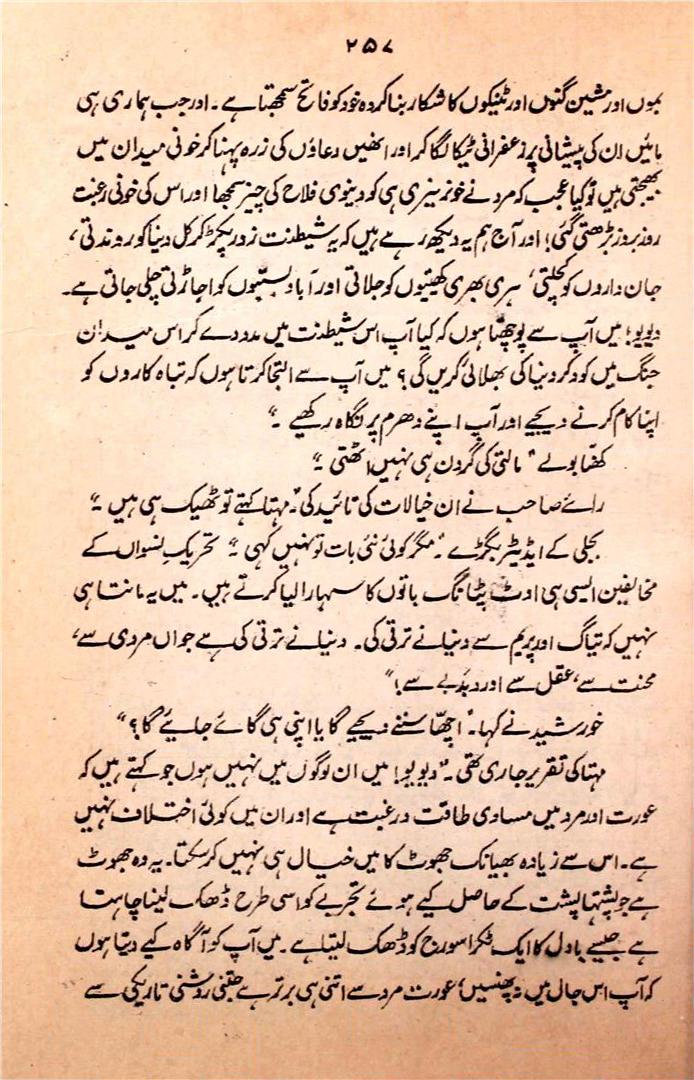 ۲۵۷
بموں اور مشین گنوں اور ٹینکوں کا شکار بنا کر وہ خود کو فاتح سمجھتا ہے۔ اور جب ہماری ہی
مائیں ان کی پیشانی پر زعفرانی ٹیکا لگا کر اور انھیں دعاؤں کی زرہ پہنا کر خونی میدان میں
بھیجتی ہیں تو کیا عجب کہ مرد نے خونریزی ہی کو دینوی فلاح کی چیز سمجھا اور اس کی خونی رغبت
روز بروز بڑھتی گئی؛ اور آج ہم یہ دیکھ رہے ہیں کہ یہ شیطنت زور پکڑ کر کل دنیا کو روندتی،
جان داروں کو کچلتی، ہری بھری کھیتیوں کو جلاتی اور آباد بستیوں کو اجاڑتی چلی جاتی ہے۔
دیویو! میں آپ سے پوچھتا ہوں کہ کیا آپ اس شیطنت میں مدد دے کر اس میدان
جنگ میں کود کر دنیا کی بھلائی کریں گی؟ میں آپ سے التجا کرتا ہوں کہ تباہ کاروں کو
اپنا کام کرنے دیجیے اور آپ اپنے دھرم پر نگاہ رکھیے۔"
کھنّا بولے "مالتی کی گردن ہی نہیں اٹھتی۔"
رائے صاحب نے ان خیالات کی تائید کی۔ "مہتا کہتے تو ٹھیک ہی ہیں۔"
بجلی کے ایڈیٹر بگڑے۔ "مگر کوئی نئی بات تو نہیں کہی۔" تحریکِ نسواں کے
مخالفین ایسی ہی اوٹ پٹانگ باتوں کا سہارا لیا کرتے ہیں۔ میں یہ مانتا ہی
نہیں کہ تیاگ اور پریم سے دنیا نے ترقی کی۔ دنیا نے ترقی کی ہے جواں مردی سے،
محنت سے، عقل سے اور دبدبے سے!"
خورشید نے کہا۔ "اچھا سننے دیجیے گا یا اپنی ہی گائے جائیے گا؟"
مہتا کی تقریر جاری تھی۔ "دیویو! میں ان لوگوں میں نہیں ہوں جو کہتے ہیں کہ
عورت اور مرد میں مساوی طاقت و رغبت ہے اور ان میں کوئی اختلاف نہیں
ہے۔ اس سے زیادہ بھیانک جھوٹ کا میں خیال ہی نہیں کر سکتا۔ یہ وہ جھوٹ
ہے جو پشتہا پشت کے حاصل کیے ہوئے تجربے کو اسی طرح ڈھک لینا چاہتا
ہے جیسے بادل کا ایک ٹکڑا سورج کو ڈھک لیتا ہے۔ میں آپ کو آگاہ کیے دیتا ہوں
کہ آپ اس جال میں نہ پھنسیں؛ عورت مرد سے اتنی ہی برتر ہے جتنی روشنی تاریکی سے